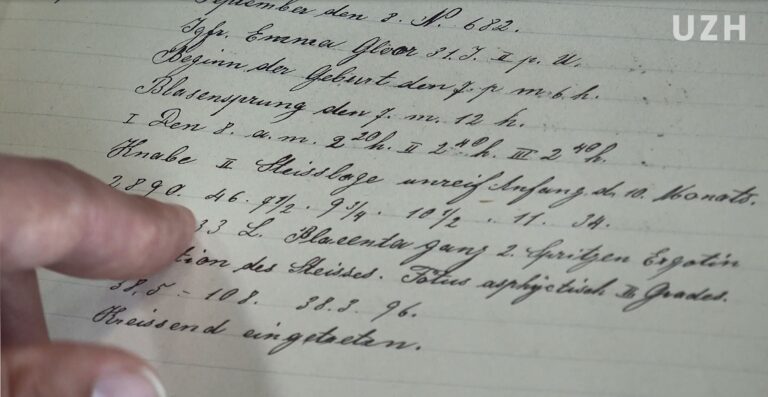 UZH
September den 8. N. 682.
Jgfr. Emma Gloor 31. J. II p. U.
Beginn der Geburt den 7. p m. 6. h.
Blasensprung den 7. m. 12 h.
I Den 8. a. m. 2 20 h. II 2 40 h. III 2 40 h.
Knabe II Steisslage unreif Anfang d. 10. Monats.
2890. 46. 9 1/2 . 9 3/4 . 10 1/2 . 11. 34.
33 L. Placenta ganz 2. Spritzen Ergotin
tion des Steisses. Fötus asphyctisch II. Grades.
38,5 - 108. 38.3. 96.
Kreissend eingetreten.